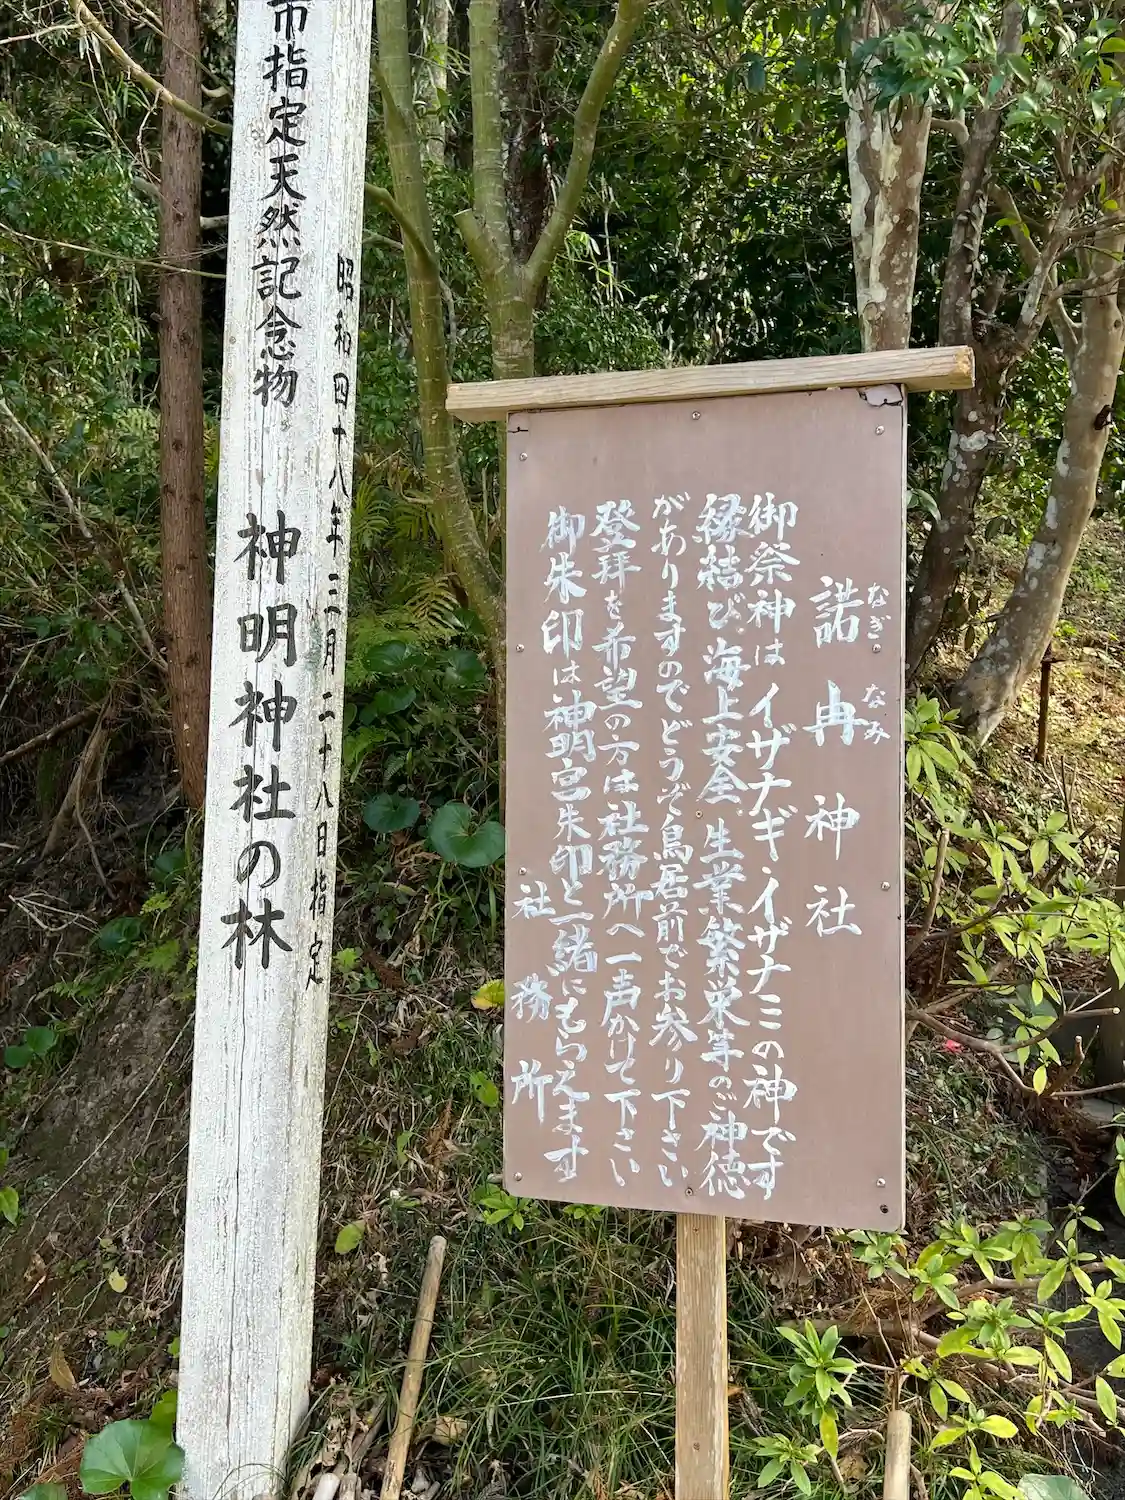 諾冉神社
なぎなみ
御祭神はイザナギ・イザナミの神です
縁結び、海上安全、生業繁栄等のご神徳
がありますのでどうぞ鳥居前でお参り下さい
登拝を希望の方は社務所へ一声かけて下さい
御朱印は神明宮朱印と一緒にもらえます
社務所
昭和四十八年三月二十八日指定
市指定天然記念物 神明神社の林